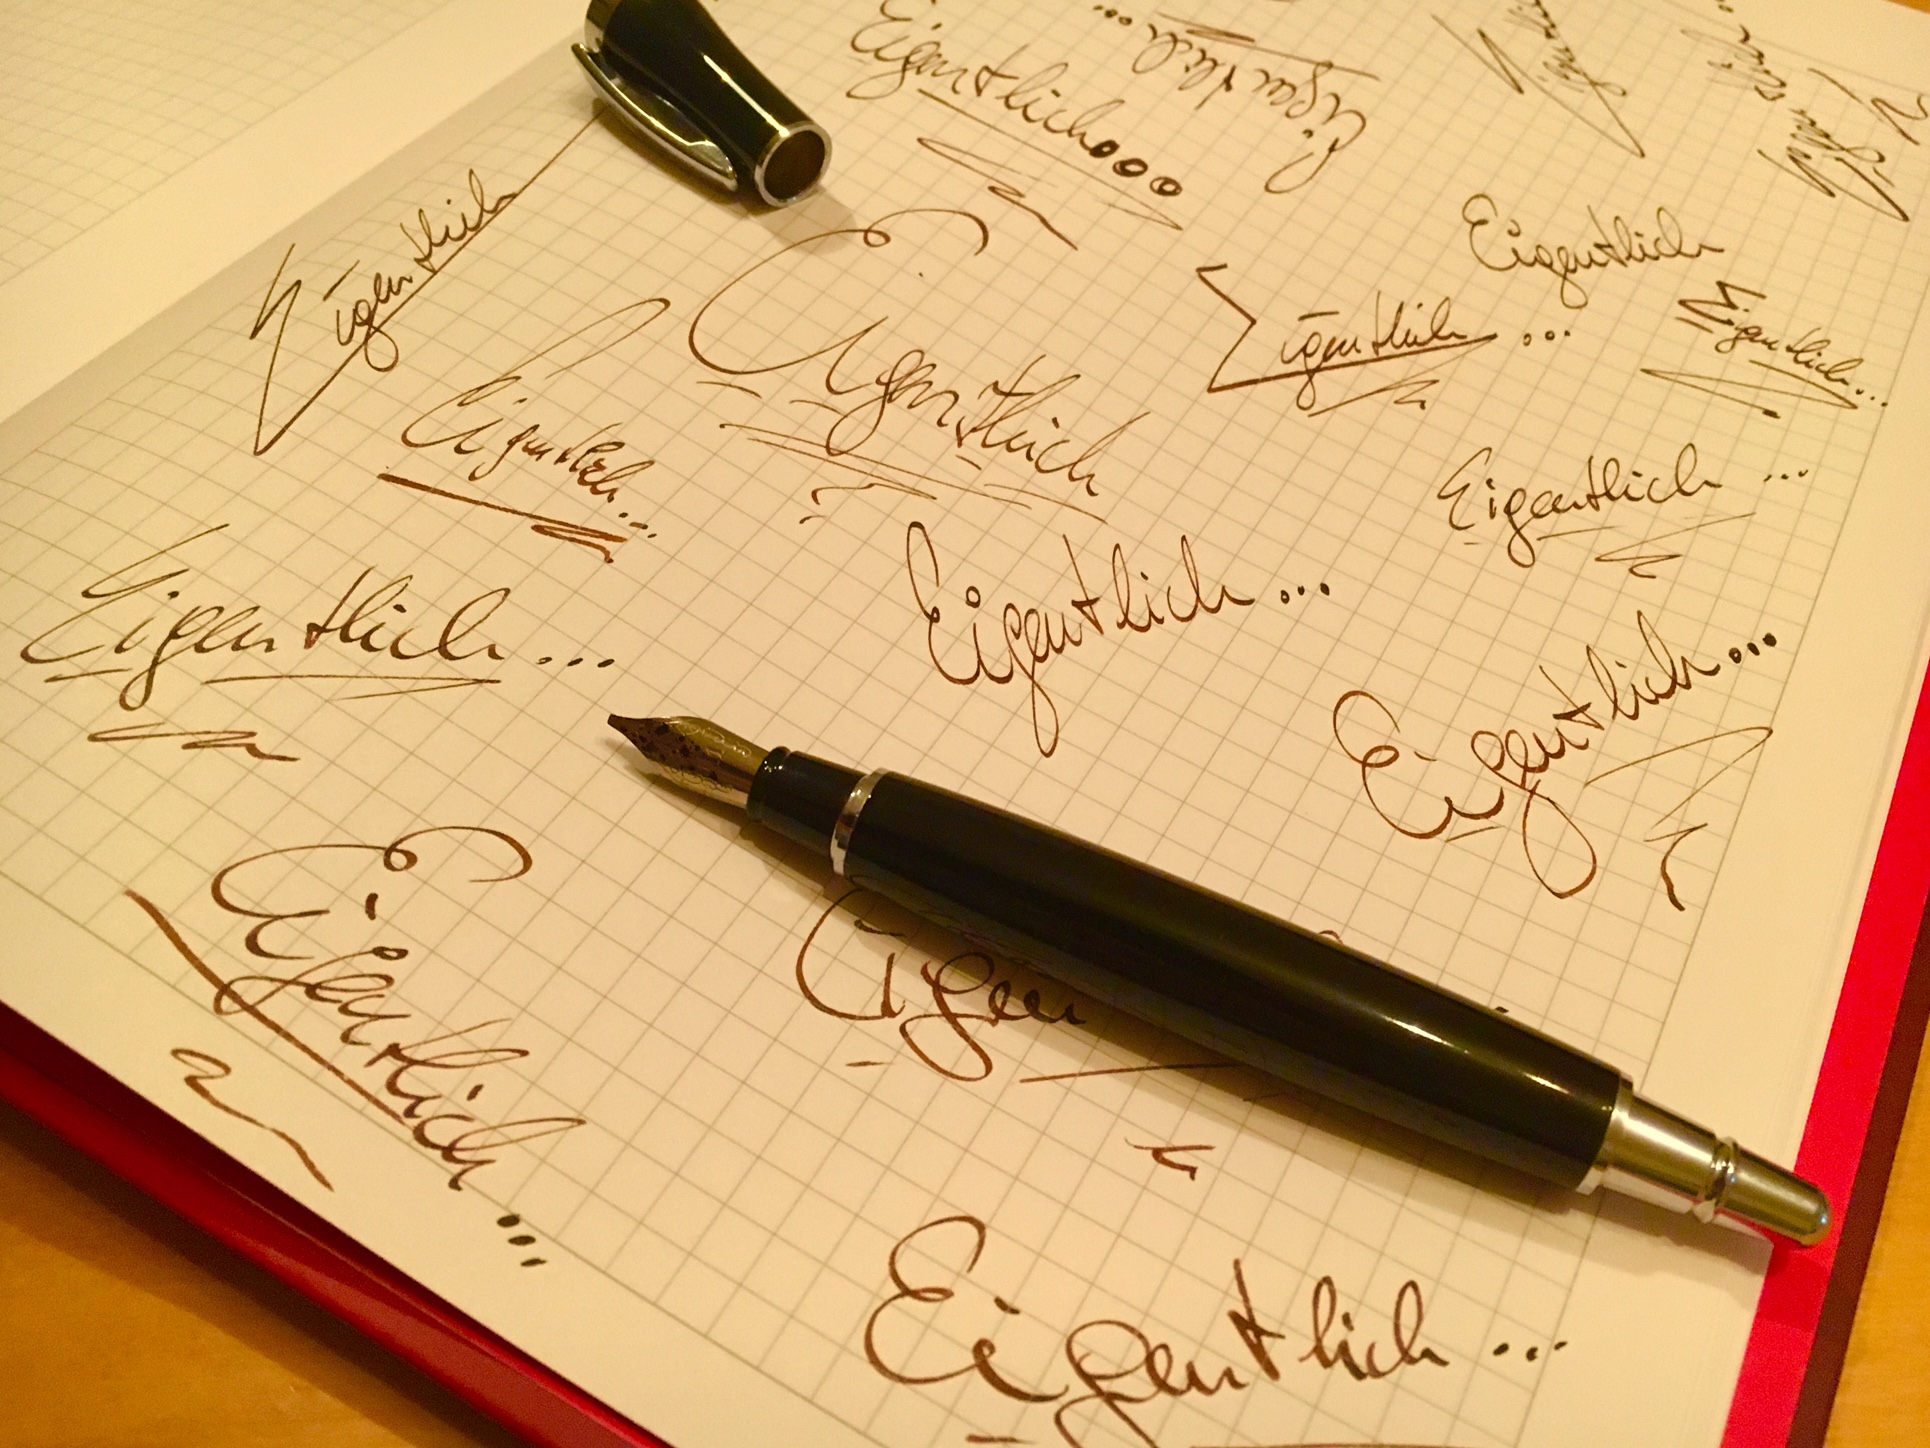 Eigentlichooo
Eigentlich...
Eigentlich
Eigentlich
Eigentlich
Eigentlich...
Eigentlich...
Eigentlich...
Eigentlich...
Eigentlich...
Eigentlich...
Eigentlich...
Eigentlich...
Eigentlich...
Eigen
Eigentlich...